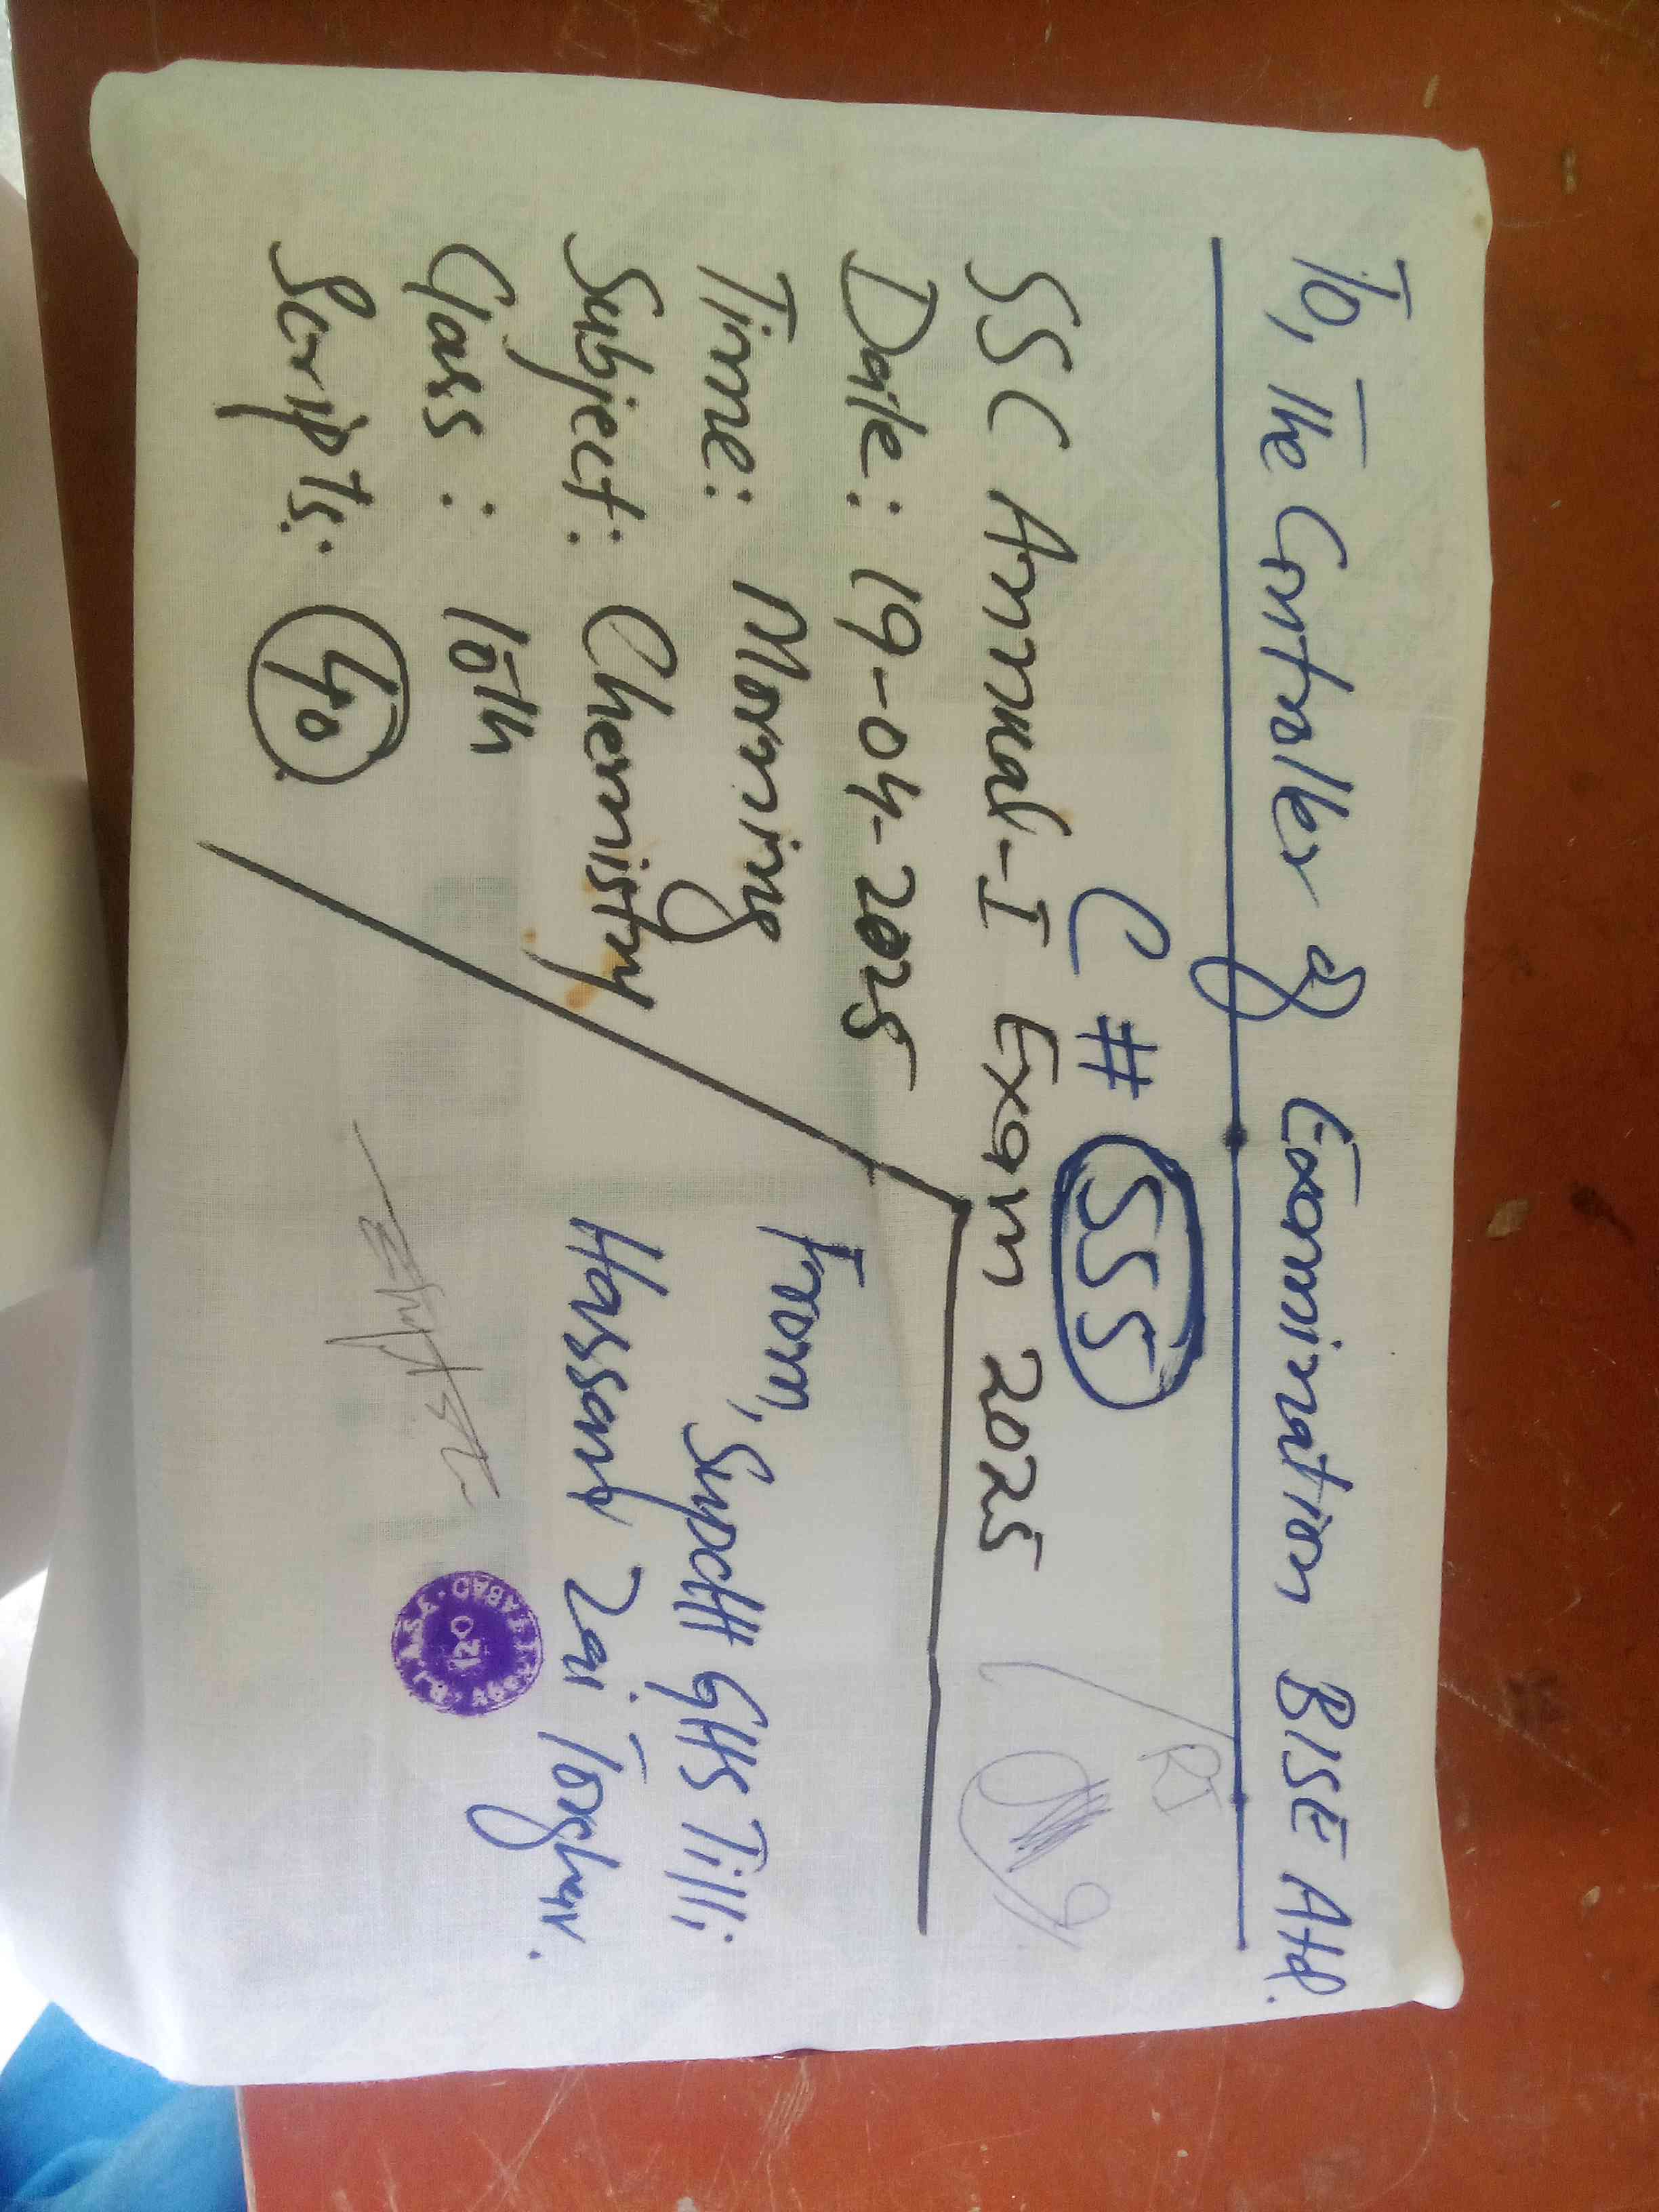 To, The Controller of Examination BISE Atd.
C # 555
SSC Annual-I Exam 2025
Date: 19-04-2025
Time: Morning
Subject: Chemistry
Class: 10th
Scripts: 40
From, Supdtt GHS Tilli
Hassan Zai Torghar.
120